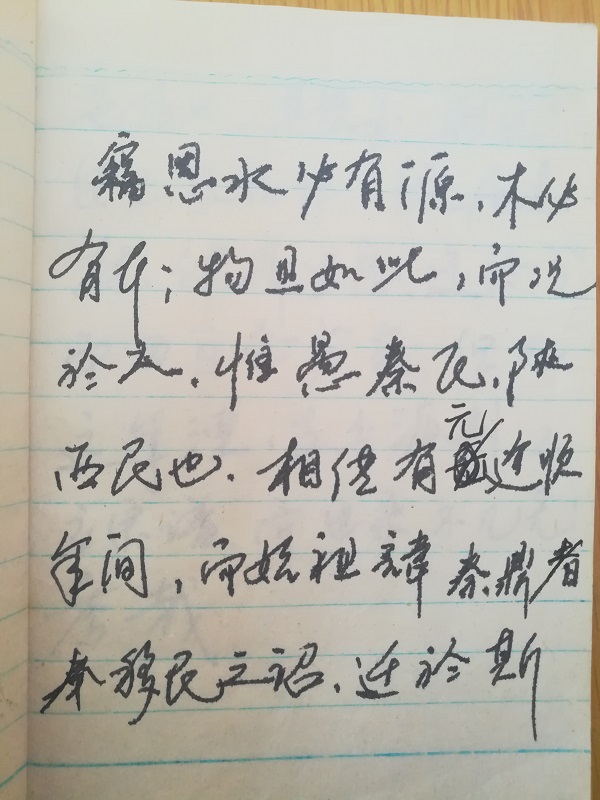 竊思水必有源，木必
有本；物且如此，而况
於人。惟愚秦民，陕
西民也．相传有元顺
年间，而始祖諱秦鼎者
奉移民之诏，迁於斯